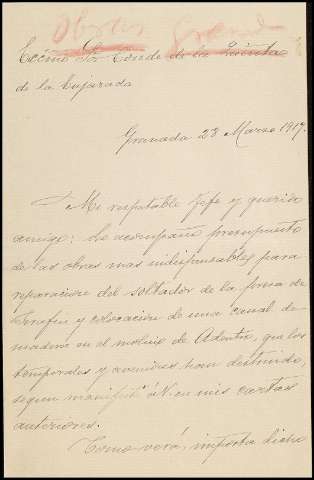 Obras Granada
Excmo Sor Conde de la Quinta
de la Enjarada
Granada 28 Marzo 1917.
Mi respetable Jefe y querido
amigo: Le acompaño presupuesto
de las obras mas indispensables para
reparacion del soltador de la presa de
y colocacion de una canal de
madera en el molino de Adentro, que los
temporales y avenidas han destruido,
segun manifesté á V. en mis cartas
anteriores.
Como verá, importa dicho